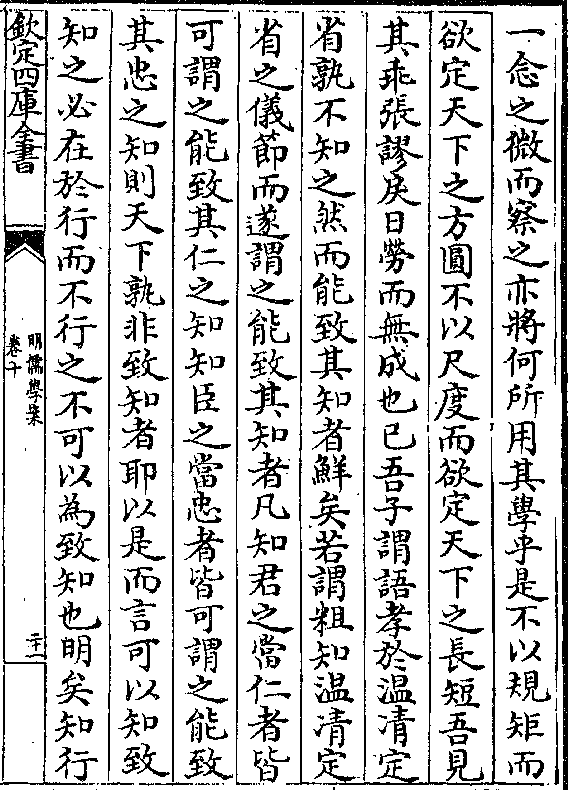 一念之微而察之亦將何所用其學乎是不以規矩而
欲定天下之方圓不以尺度而欲定天下之長短吾見
其乖張謬戾日勞而無成也已吾子謂語孝於温凊定
省孰不知之然而能致其知者鮮矣若謂粗知温凊定
省之儀節而遂謂之能致其知者凡知君之當仁者皆
可謂之能致其仁之知知臣之當忠者皆可謂之能致
其忠之知則天下孰非致知者耶以是而言可以知致
知之必在於行而不行之不可以為致知也明矣知行
欽定四庫全書
明儒學案
卷十
二十一